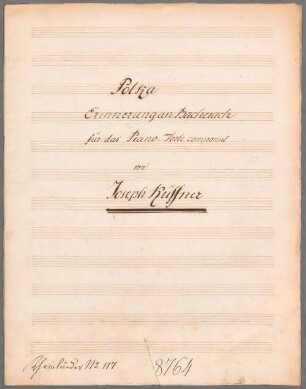 Polka
Erinnerung an Bacherach
für das Piano-Forte componirt
von
Joseph Küffner
Rheinländer No 117
8764